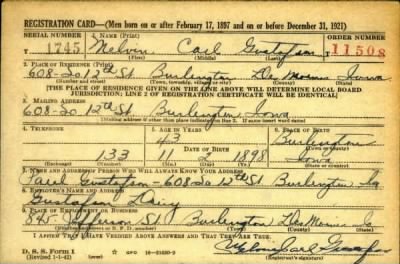 REGISTRATION CARD—(Men born on or after February 17, 1897 and on or before December 31, 1921)
SERIAL NUMBER 1. NAME (Print) ORDER NUMBER
1745 Melvin Carl Gustafson 11508
(First) (Middle) (Last)
2. PLACE OF RESIDENCE (Print)
608-So. 12th St. Burlington Des Moines Iowa
(Number and street) (Town, township, village, or city) (County) (State)
[THE PLACE OF RESIDENCE GIVEN ON THE LINE ABOVE WILL DETERMINE LOCAL BOARD
JURISDICTION; LINE 2 OF REGISTRATION CERTIFICATE WILL BE IDENTICAL]
3. MAILING ADDRESS
608-So. 12th St. Burlington, Iowa
[Mailing address if other than place indicated on line 2. If same insert word same]
4. TELEPHONE 5. AGE IN YEARS 6. PLACE OF BIRTH
43 Burlington
DATE OF BIRTH (Town or county)
133 11 2 1898 Iowa
(Exchange) (Number) (Mo.) (Day) (Yr.) (State or country)
7. NAME AND ADDRESS OF PERSON WHO WILL ALWAYS KNOW YOUR ADDRESS
Gustafson-608-So 12th St Burlington, Ia
8. EMPLOYER'S NAME AND ADDRESS
Gustafson Dairy
9. PLACE OF EMPLOYMENT OR BUSINESS
845 St. Burlington Des Moines Ia
(Number and street or R. F. D. number) (Town) (County) (State)
I AFFIRM THAT I HAVE VERIFIED ABOVE ANSWERS AND THAT THEY ARE TRUE.
D. S. S. Form 1
(Revised 1-1-42) GPO Melvin Carl Gustafson
(Registrant's signature)